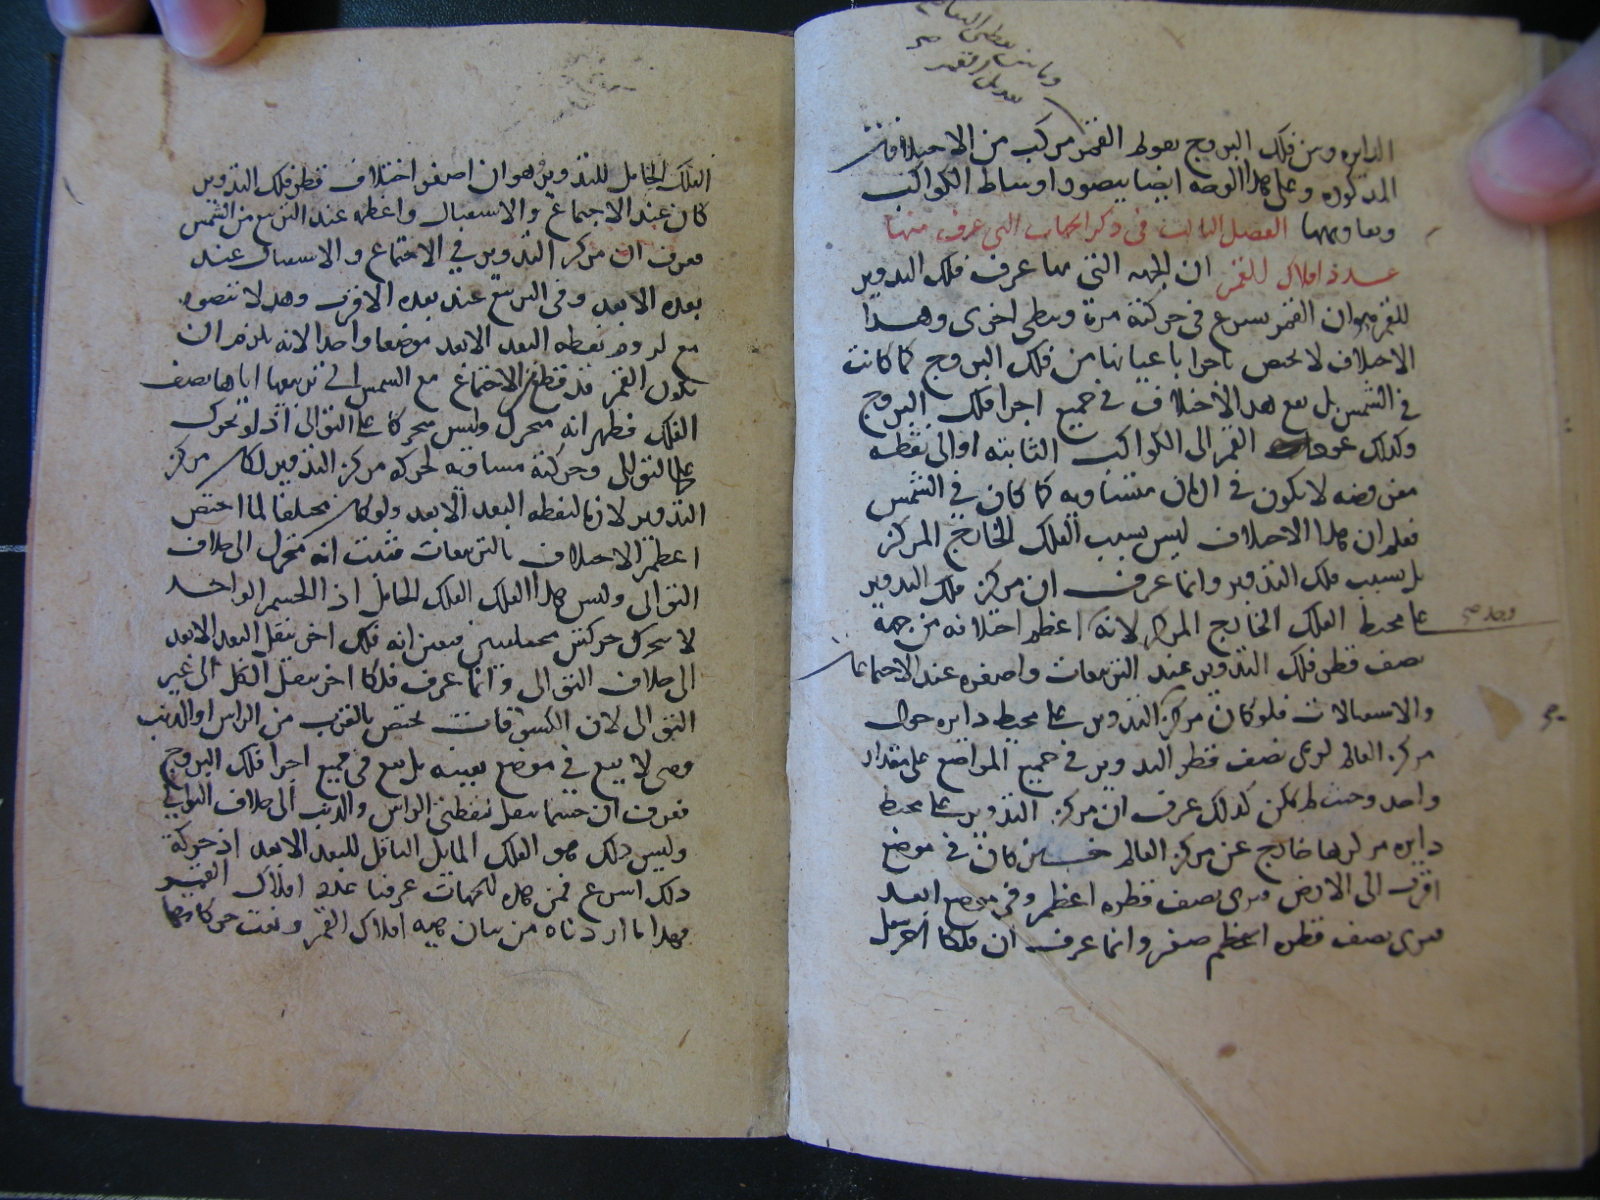 وما بين نقطتي
تعديل القمر صح
الدايره ومن فلك البروج بعوط القمر مركب من الاختلافات
المذكوره وعلى هذا الوجه ايضا يتصور اوساط الكواكب
وتعاويمها الفصل الثالث في ذكر الجهات التي عرف منها
عدة افلاك للقمر ان الجهه التي بها عرف فلك التدوير
للقمر هو ان القمر يسرع في حركته مرة ويبطى اخرى وهذا
الاختلاف لا يختص باجزا باعيانها من فلك البروج كما كانت
في الشمس بل يقع هذا الاختلاف في جميع اجزا فلك البروج
وكذلك عودات القمر الى الكواكب الثابته او الى نقطه
مفروضه لا تكون في ازمان متساويه كما كان في الشمس
فعلم ان هذا الاختلاف ليس بسبب الفلك الخارج المركز
بل بسبب فلك التدوير وانما عرف ان مركز فلك التدوير
على محيط الفلك الخارج المركز لانه اعظم اختلافه من جهة
وجد صح
نصف قطر فلك التدوير عند التربيعات واصغره عند الاجتماعات
والاستقبالات فلو كان مركز التدوير على محيط دايره حول
صح
مركز العالم لرى نصف قطر التدوير في جميع المواضع على مقدار
واحد وحيث لم يمكن كذلك عرف ان مركز التدوير على محيط
دايره مركزها خارج عن مركز العالم فحين كان في موضع
اقرب الى الارض فيرى نصف قطره اعظم وفي موضع ابعد
فيرى نصف قطره اعظم صغر وانما عرف ان فلكا اخر ينقل
الفلك الحامل للتدوير هو ان اصغر اختلاف قطر فلك التدوير
كان عند الاجتماع والاستقبال واعظمه عند التربيع من الشمس
فعرف ان مركز التدوير في الاجتماع والاستقبال عند
بعده الابعد وفي التربيع عند بعده الاقرب وهذا لا يتصور
مع لزوم نقطه البعد الابعد موضعا واحدا لانه يلزم ان
يكون القمر قد قطع من الاجتماع مع الشمس الى تربيعها اياها نصف
الفلك فظهر انه متحرك وليس متحركا على التوالى اذ لو تحرك
على التوالى وحركته مساويه لحركه مركز التدوير لكان مركز
التدوير لازما لنقطه البعد الابعد ولو كان مختلفا لما اختص
اعظم الاختلاف بالتربيعات فثبت انه متحرك الى خلاف
التوالى وليس هذا الفلك الفلك الحامل اذ الجسم الواحد
لا يتحرك حركتين مختلفتين فتعين انه فلك اخر ينقل البعد الابعد
الى خلاف التوالى وانما عرف فلكا اخر ينقل الكل الى غير
التوالى لان الكسوفات تختص بالقرب من الراس او الذنب
وهي لا يقع في موضع بعينه بل يقع في جميع اجزا فلك البروج
فعرف ان جسما ينقل نقطتي الراس والذنب الى خلاف التوالي
وليس ذلك هو الفلك المايل الناقل للبعد الابعد اذ حركة
ذلك اسرع فمن هذه الجهات عرفنا عدد افلاك القمر
فهذا ما اردناه من بيان هيه افلاك القمر ونعت حركاتها